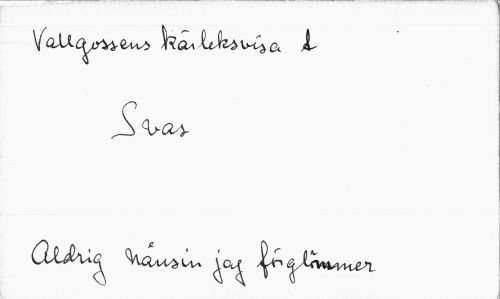 Vallgossens kärleksvisa
Svas
Aldrig nånsin jag förglömmer